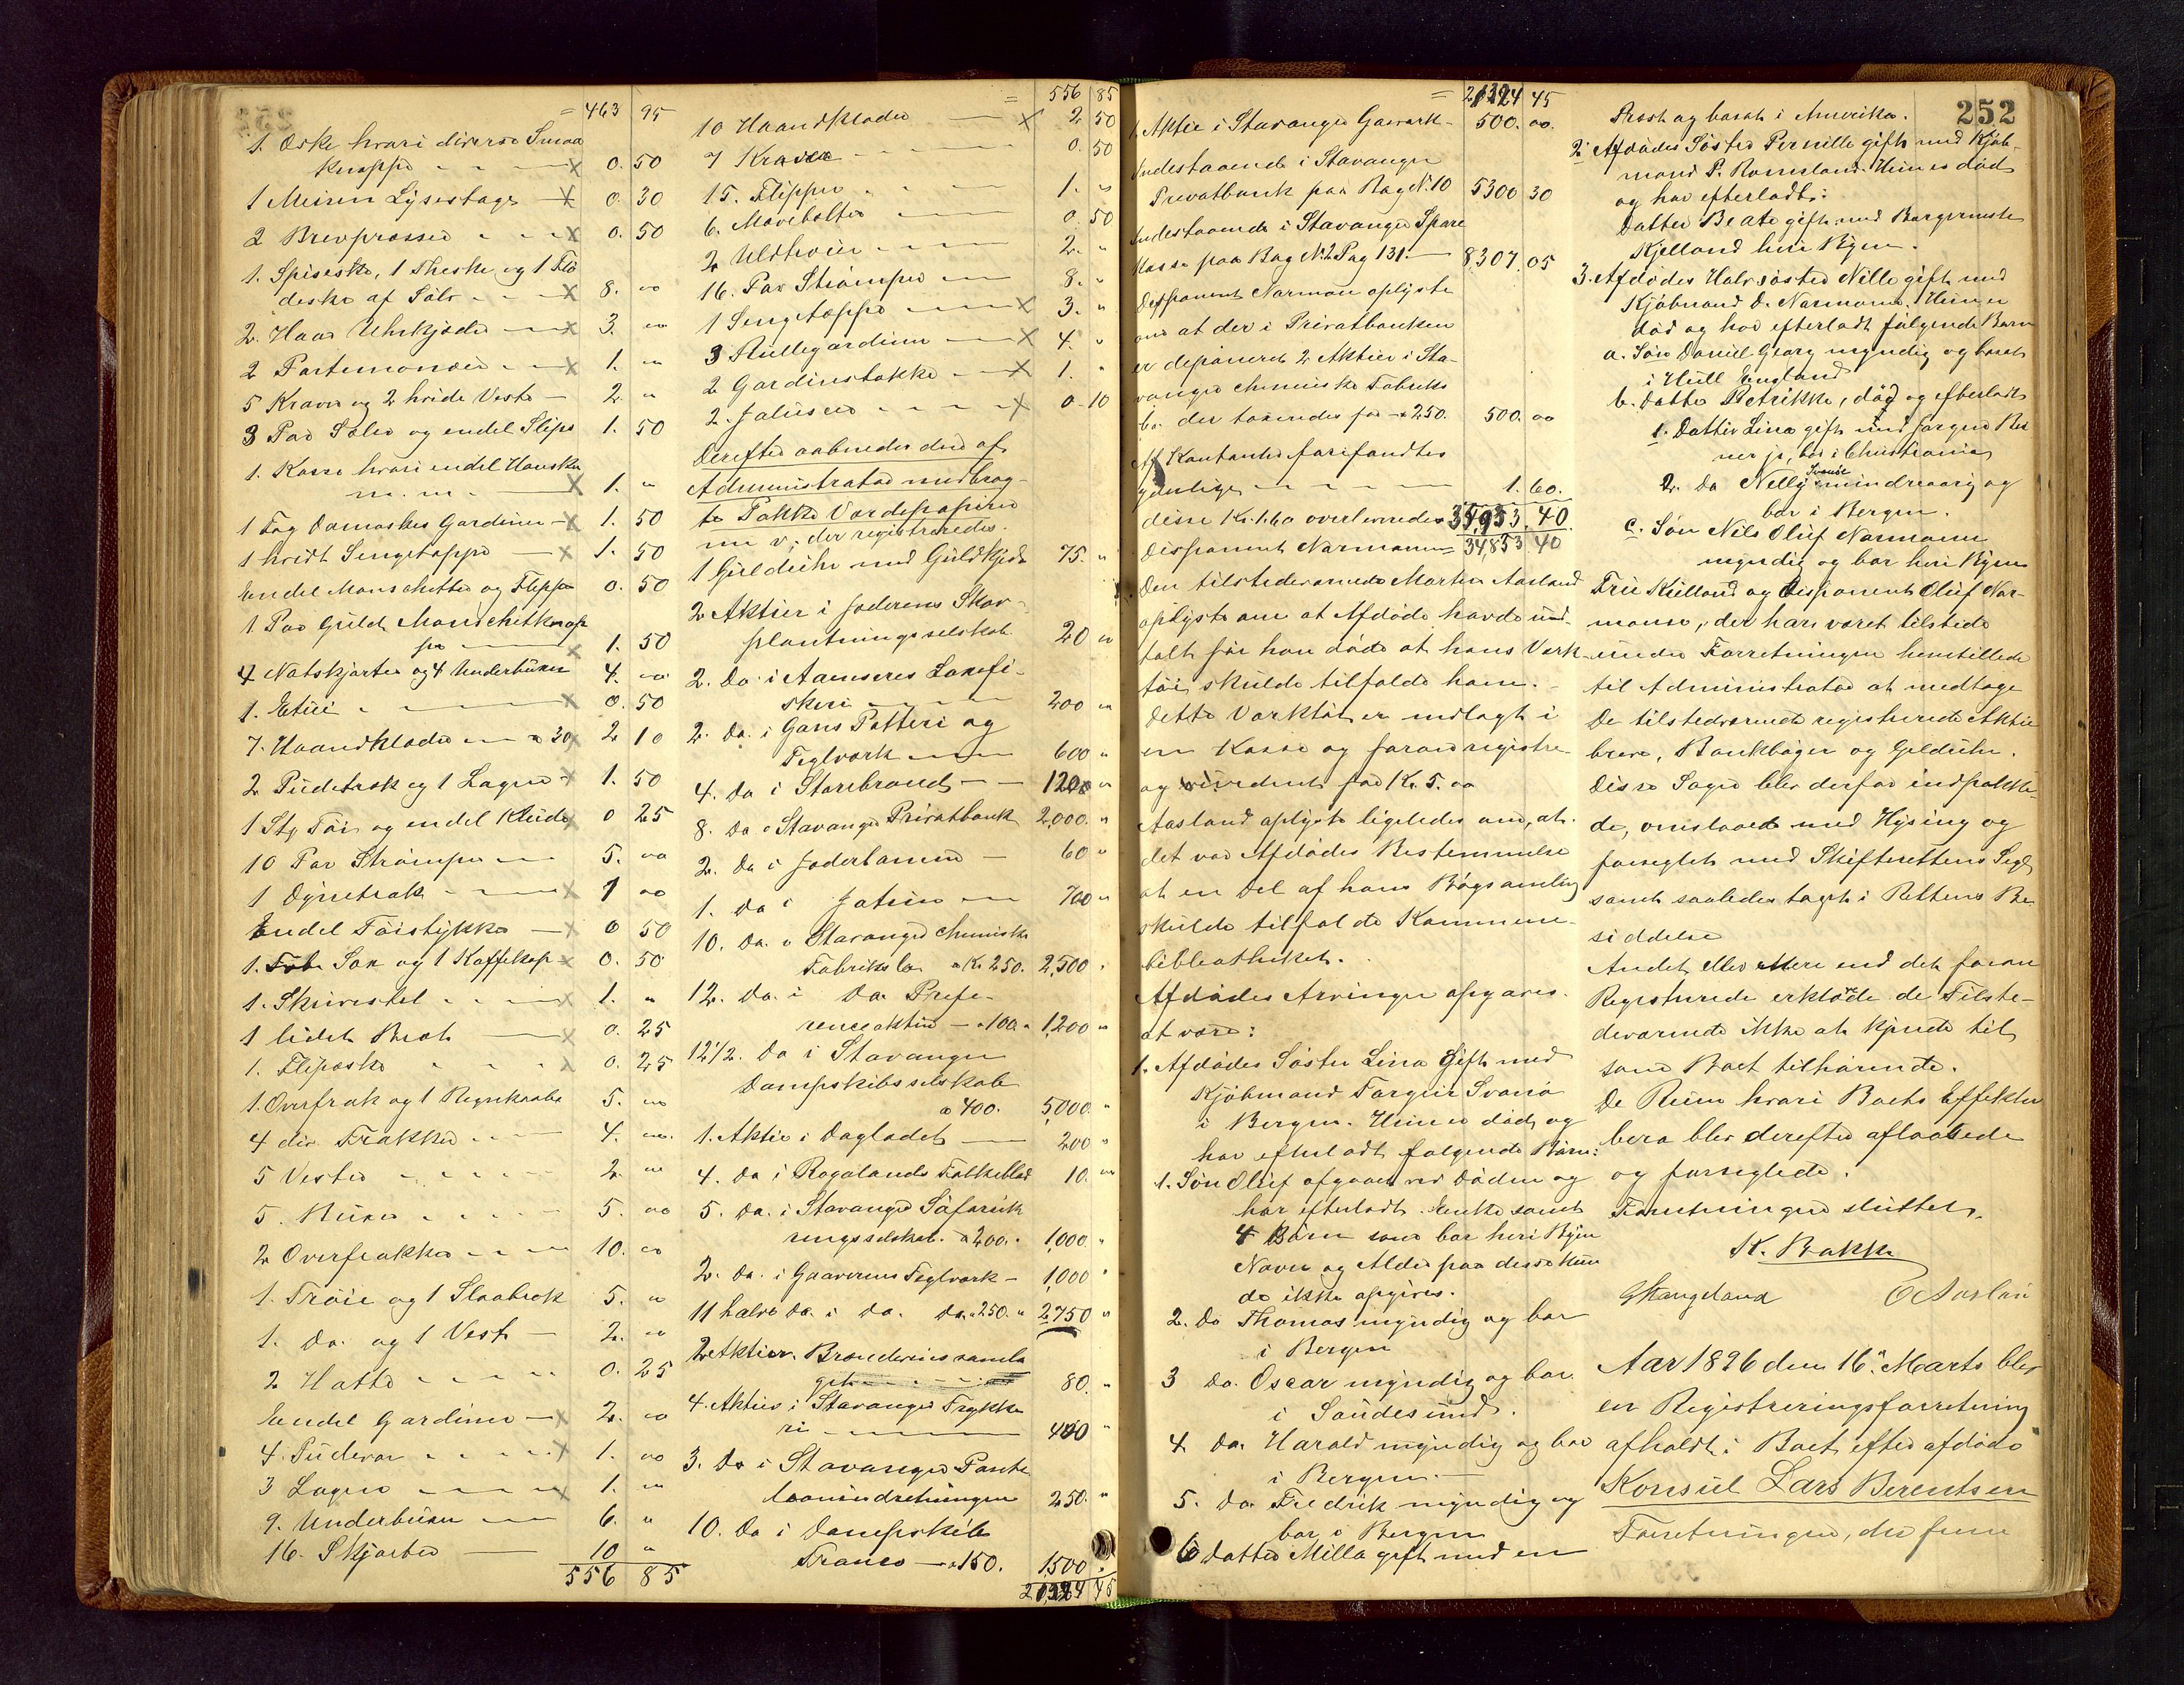 = 463 95
1. Æske hvori diverse Smaa
knappe - - - x 0. 50
1 Meisen Lysestage - x 0. 30
2 Brevpresser - - - x 0. 50
1. Spiseske, 1 Theske og 1 Flø
deske af Sølv - - - x 8. oo
2. Haar Uhrkjæder - x 3. oo
2 Portemonæer - - x 1. "
5 Kraver og 2 hvide Veste - 2 "
3 Par Seler og endel Slips 1. 50
1. Kasse hvori endel Hansker
m. m. - x 1. "
1 Fag Damaskes Gardiner - x 1. 50
1 hvidt Sengetæppe - x 1. 50
Endel Manschetter og Flipper 0. 50
1. Par Guld Manschetknap
per - x 1. 50
4 Natskjorter og 4 Underbuxer 4. oo
1. Etui - - - x 0. 50
7. Haandklæder - a 30 x 2 10
2 Pudetræk og 1 Lagen - x 1. 50
1 Stk Tøi og endel Klude x 0 25
10 Par Strømper - 5. oo
1 Dynetræk - - - x 1 oo
Endel Tøistykker - x 0 50
1. Sax og 1 Kaffekop x 0. 50
1. Skrivestel - - - x 1. "
1 lidet Bræt - x 0. 25
1. Flipæske - - - x 0. 25
1. Overfrak og 1 Regnkaabe 5. oo
4 div. Frakker - - - 4. oo.
5 Vester - - - 2. oo
5. Buxer - - - 5. oo
2 Overfrakker - - - 10. oo
1. Trøie og 1 Slaabrok 5. oo
1. Do. og 1 Vest - 2. oo
2 Hatte - - - 0. 25
Endel Gardiner - x 2. oo
4. Pudevar - - - x 1. oo
3 Lagen - - - x 1. oo
9. Underbuxer - - 6. "
16. Skjorter - 10 "
556 85
= 556 85
10 Haandklæder - x 2 50
7 Kraver - - - 0. 50
15. Flipper - - - 1. "
6. Mavebælter - - - 0. 50
2 Uldtrøier - - - 2. "
16. Par Strømper - 8. "
1 Sengetæppe - - - x 3. "
3 Rullegardiner - x 4. "
2 Gardinstokke - x 1. "
2. Jalusier - - - x 0 10
Derefter aabnedes den af
Administrator medbrag-
te Pakke Værdipapirer
m. v., der registreredes.
1 Guldur med Guldkjæde 75. "
2 Aktier i Jæderens Skov-
plantningsselskab 20 oo
2. Do. i Aamseres Laxefi-
skeri - - - 200 oo
2. Do. i Gans Potteri og
Teglværk - - - 600 "
4. Do i Storebrand - - 1200 oo
8. Do i Stavanger Privatbank 2,000. "
2. Do i Jæderbanen - 60 "
1. Do i Jotun - 700 "
10. Do. i Stavanger chemiske
Fabriksko a Kr 250. 2,500 "
12. Do. i Do. Prefe-
renceaktier - a 100. 1,200 "
12 1/2. Do i Stavanger
Dampskibsselskab
a 400. 5,000. "
1. Aktie i Dagbladet - 200 "
4. Do i Rogalands Folkeblad 10. oo
5. Do. i Stavanger Søforsik
ringsselskab. a 200. 1,000. "
2. Do. i Graaverens Teglværk - 1,000 "
11 halve Do. i Do. Do. a 250. " 2,750 "
2 Aktier. Brænderiessamla
get - - - 80. "
4. Aktier i Stavanger Trykke
ri - 400 "
3. Do i Stavanger Pante
laaneindretningen 250. "
10. Do i Dampskib
Franco - a 150. 1500 "
45
= 45
1. Aktie i Stavanger Gasværk - 500. oo.
Indestaaende i Stavanger
Privatbank paa Bog No. 10 5300 30
Indestaaende i Stavanger Spare
kasse paa Bog No. 2 Pag 131. - 8,307. 05
Disponent Normann oplyste
om at der i Privatbanken
er deponeret 2 Aktier i Sta-
vanger chemiske Fabriks
Co. der taxeredes for a 250. 500. oo
Af Kontanter forefandtes
ydmlige - - - 1. 60.
disse Kr. 1.60 overleveredes 40.
Disponent Normann 34,853 40
Den tilstedeværende Morten Aasland
oplyste om at Afdøde havde ud-
talt før han døde at hans Værk
tøi skulde tilfalde ham. -
Dette Værktøi er nedlagt i
en Kasse og foran registre-
og vurderet for Kr. 5. oo
Aasland oplyste ligeledes om, at
det var Afdødes Bestemmelse
at en Del af hans Bogsamling
skulde tilfalde Kommune-
bibliotheket.
Afdødes Arvinger opgaves
at være:
1. Afdødes Søster Lina gift med
Kjøbmand Torgeir Svanø
i Bergen. Hun er død og
har efterladt følgende Børn:
1. Søn Oluf afgaaet ved Døden og
har efterladt Enke samt
4 Børn som bor her i Byen
Navn og Alder paa disse kun
de ikke opgives.
2. Do Thomas myndig og bor
i Bergen
3 Do. Oscar myndig og bor
i Søndesund.
4. Do. Harald myndig og bor
i Bergen. -
5. Do Fredrik myndig og
bor i Bergen
6 Datter Milla gift med en
252
Præst og bosat i Amerika.
2. Afdødes Søster Pernille gift med Kjøb-
mand P. Romsland. Hun er død
og har efterladt:
Datter Beate gift med Borgermester
Kjelland her i Byen.
3. Afdødes Halvsøster Nille gift med
Kjøbmand D. Normann. Hun er
død og har efterladt følgende Børn
a. Søn Daniel Georg myndig og bosat
i Hull England
b. Datter Petrikke, død og efterladt
1. Datter Lina gift med Jørgen Ber
ner jr, bor i Christiania
2. Do Nelly Svanøe mindreaarig og
bor i Bergen.
c. Søn Nils Oluf Normann
myndig og bor her i Byen
Fru Kielland og Disponent Oluf Nor-
mann, der har været tilstede
under Forretningen henstillede
til Administrator at medtage
De tilstedeværende registrerede Aktie
breve, Bankbøger og Gulduhr.
Disse Sager blev derfor indpakke-
de, omslaaed med Hysing og
forseglet med Skifterettens Segl
samt saaledes taget i Rettens Be-
siddelse
Andet eller Mere end det foran
Registrerede erklærede de Tilste-
deværende ikke at kjende til
som Boet tilhørende.
De Rum hvori Boets Effekter
bero blev derefter aflaasede
og forseglede.
Forretningen sluttet.
K. Bakke
GHaugeland O Aasland
Aar 1896 den 16. Marts blev
en Registreringsforretning
afholdt i Boet efter afdøde
Konsul Lars Berentsen
Forretningen, der frem